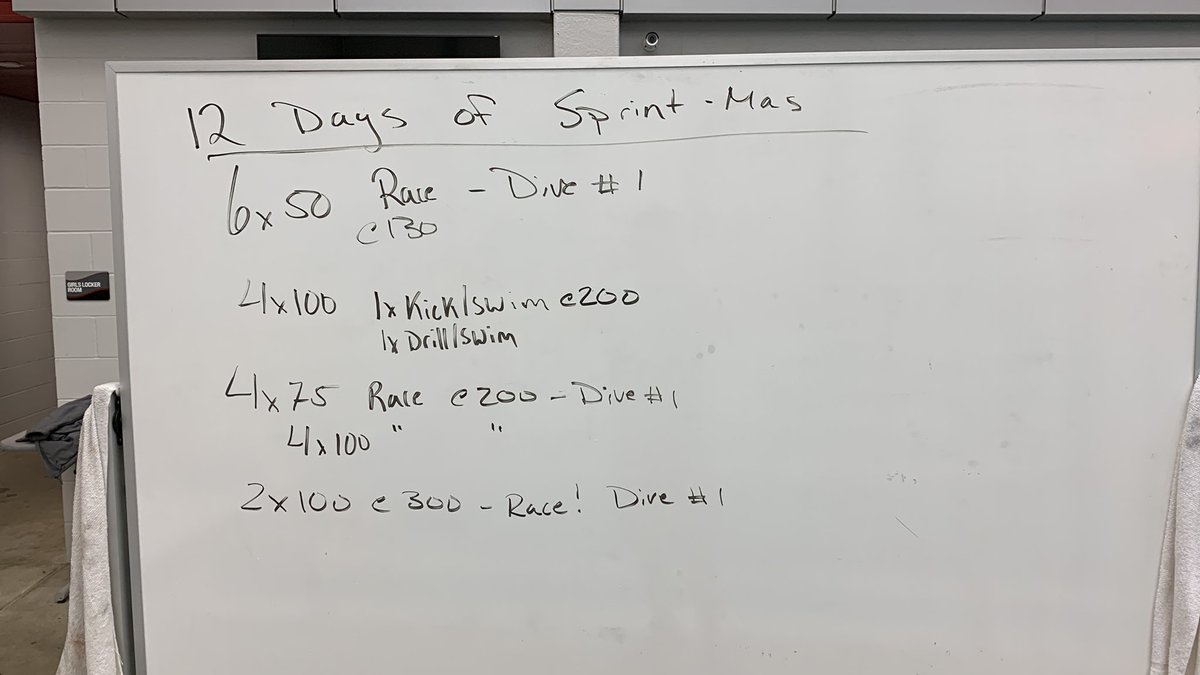 12 Days of Sprint-Mas
6x50 Race - Dive #1
@130
GIRLS LOCKER
ROOM
4x100 1x Kick/swim @200
1x Drill/swim
4x75 Race @200 - Dive #1
4x100 " "
2x100 @300 - Race! Dive #1